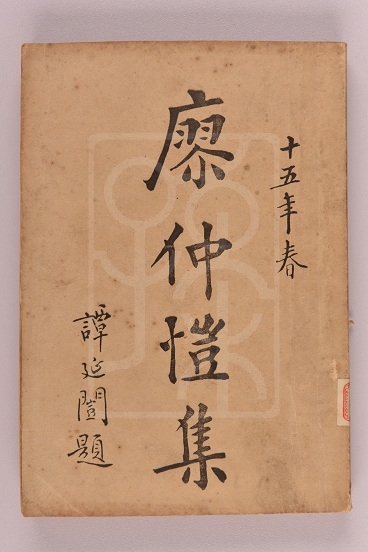 十五年春
廖仲愷集
譚延闓題